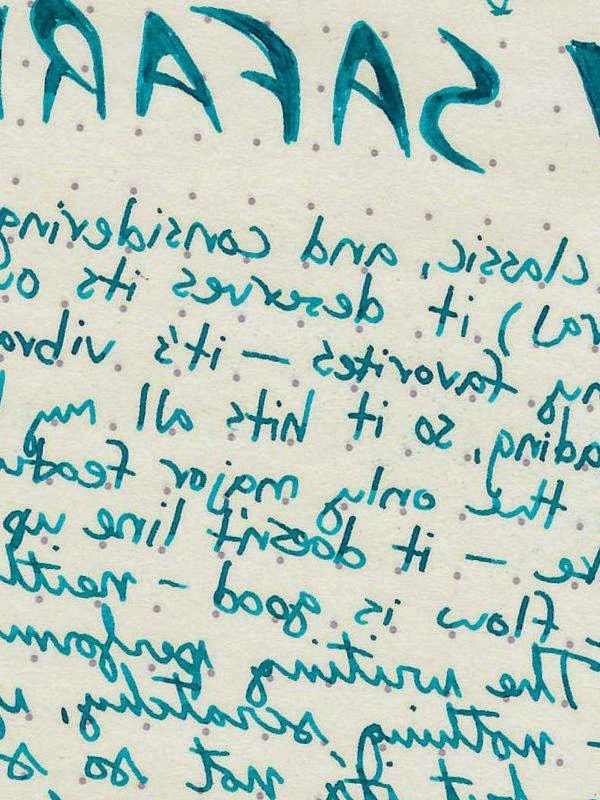 SAFARI
classic, and considering
it deserves its
my favorites — it's
so it hits all my
the only major
— it doesn't line up
flow is good –
The writing
nothing, scratchy,
but it's not so